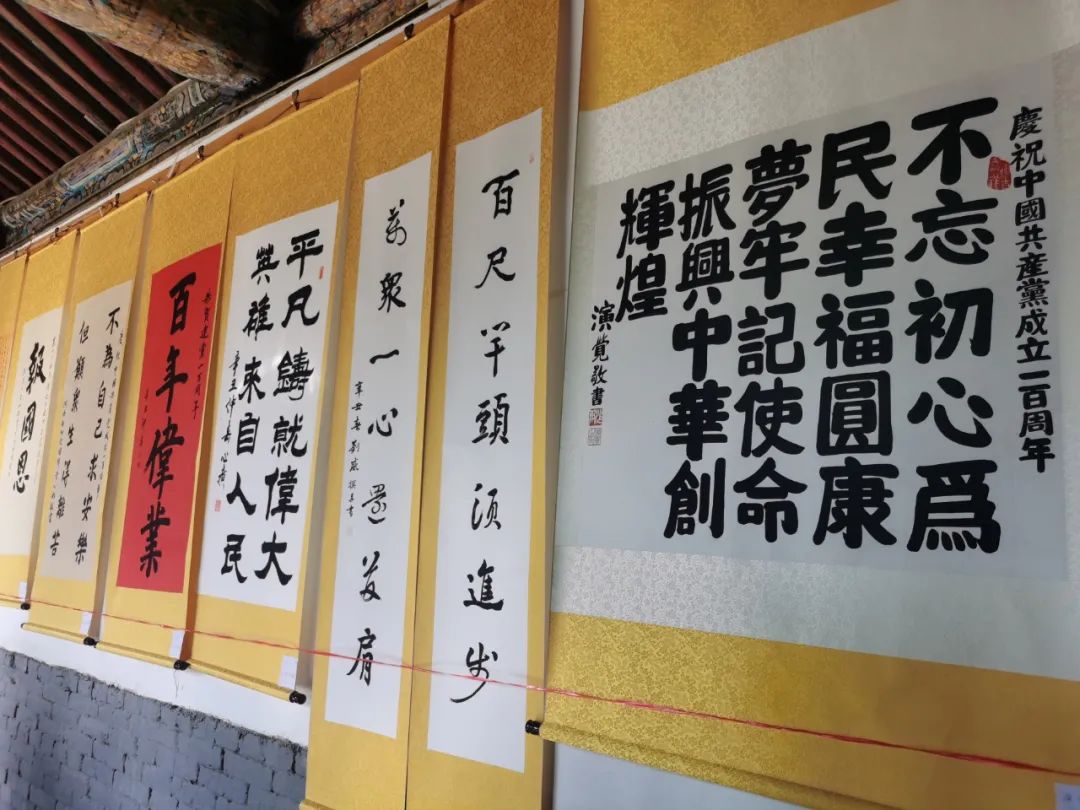 慶祝中國共產黨成立一百周年
不忘初心爲
民幸福圓康
夢牢記使命
振興中華創
輝煌
演覺敬書
百尺竿頭須進步
萬眾一心還並肩
平凡鑄就偉大
英雄來自人民
百年偉業
不為自己求安樂
但願眾生得離苦
報國恩